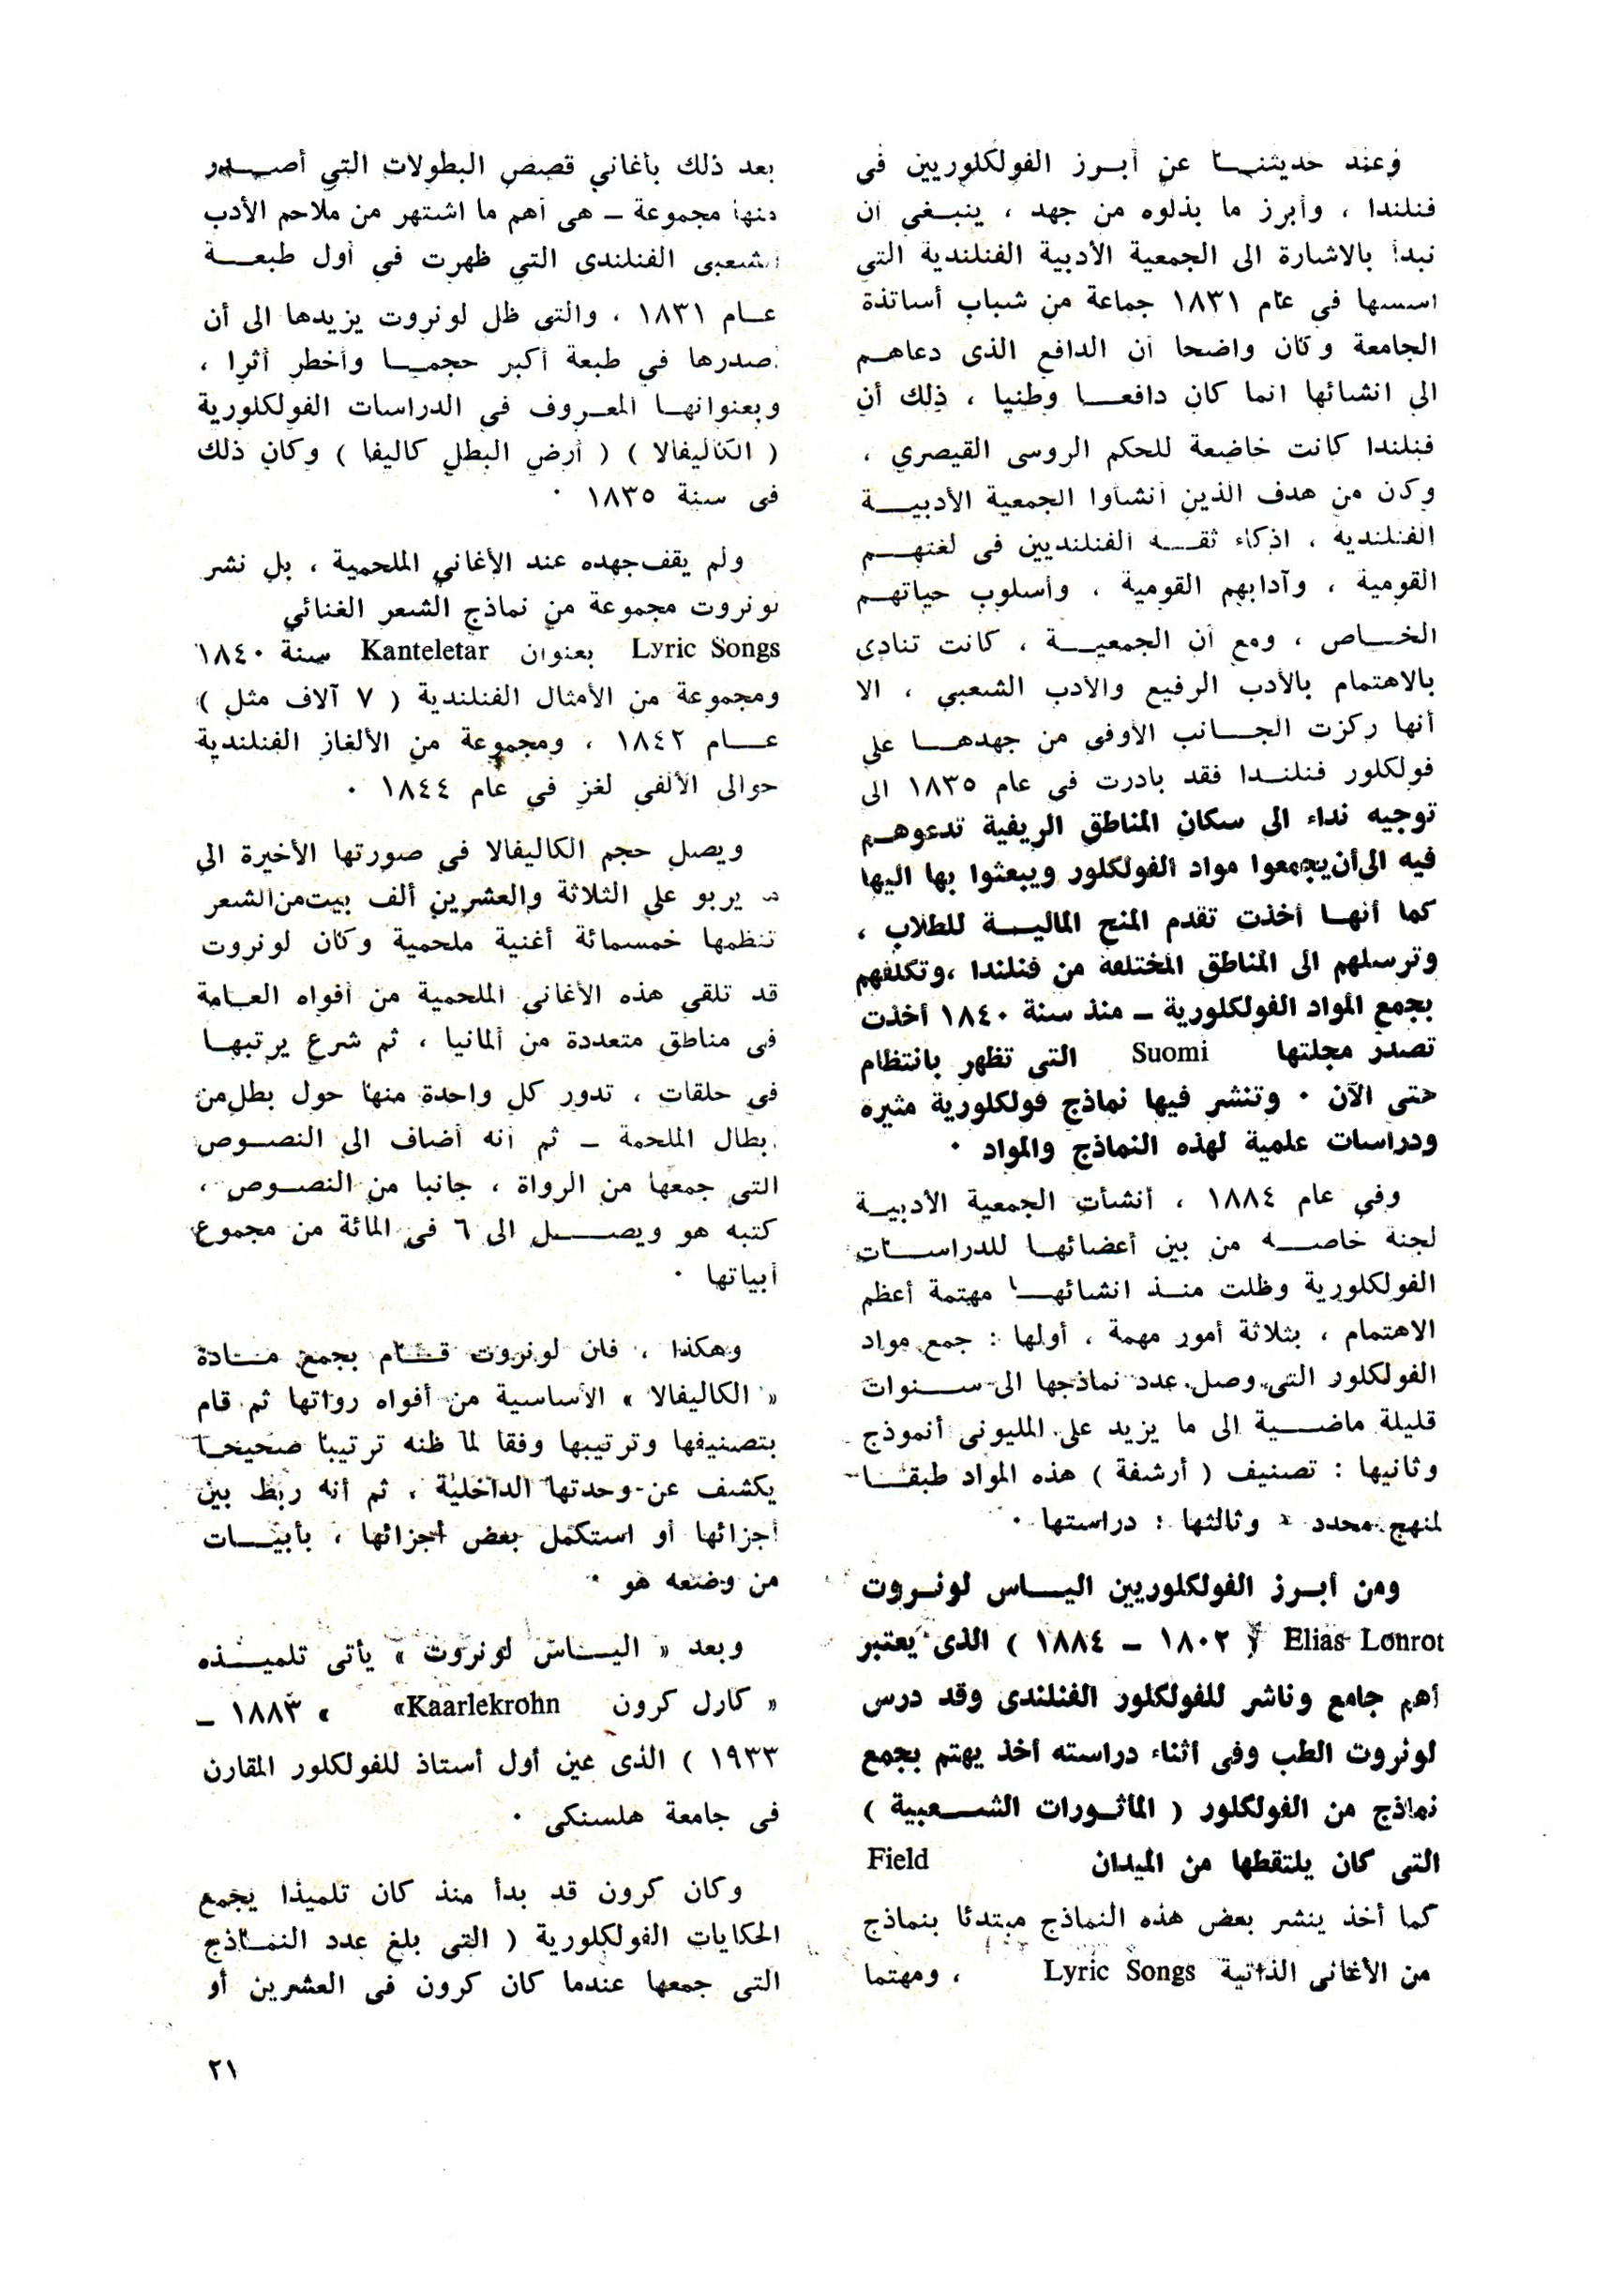 وعند حديثنا عن أبرز الفولكلوريين فى
فنلندا ، وأبرز ما بذلوه من جهد ، ينبغي أن
نبدأ بالاشارة الى الجمعية الأدبية الفنلندية التي
اسسها في عام ١٨٣١ جماعة من شباب أساتذة
الجامعة وكان واضحا أن الدافع الذى دعاهم
الى انشائها انما كان دافعا وطنيا ، ذلك أن
فنلندا كانت خاضعة للحكم الروسى القيصري ،
وكن من هدف الذين أنشأوا الجمعية الأدبية
الفنلندية ، اذكاء ثقه الفنلنديين فى لغتهم
القومية ، وآدابهم القومية ، وأسلوب حياتهم
الخاص ، ومع أن الجمعية ، كانت تنادى
بالاهتمام بالأدب الرفيع والأدب الشعبي ، الا
أنها ركزت الجانب الأوفى من جهدها على
فولكلور فنلندا فقد بادرت فى عام ١٨٣٥ الى
توجيه نداء الى سكان المناطق الريفية تدعوهم
فيه الى أن يجمعوا مواد الفولكلور ويبعثوا بها اليها
كما أنها أخذت تقدم المنح المالية للطلاب ،
وترسلهم الى المناطق المختلفة من فنلندا ، وتكلفهم
بجمع المواد الفولكلورية – منذ سنة ١٨٤٠ أخذت
تصدر مجلتها Suomi التى تظهر بانتظام
حتى الآن ٠ وتنشر فيها نماذج فولكلورية مثيره
ودراسات علمية لهذه النماذج والمواد ٠
وفي عام ١٨٨٤ ، أنشأت الجمعية الأدبية
لجنة خاصه من بين أعضائها للدراسات
الفولكلورية وظلت منذ انشائها مهتمة أعظم
الاهتمام ، بثلاثة أمور مهمة ، أولها : جمع مواد
الفولكلور التى وصل عدد نماذجها الى سنوات
قليلة ماضية الى ما يزيد على المليونى أنموذج
وثانيها : تصنيف ( أرشفة ) هذه المواد طبقا
لمنهج محدد ٠ وثالثها : دراستها ٠
ومن أبرز الفولكلوريين الياس لونروت
Elias Lonrot ( ١٨٠٢ – ١٨٨٤ ) الذى يعتبر
أهم جامع وناشر للفولكلور الفنلندى وقد درس
لونروت الطب وفى أثناء دراسته أخذ يهتم بجمع
نماذج من الفولكلور ( المأثورات الشعبية )
التى كان يلتقطها من الميدان Field
كما أخذ ينشر بعض هذه النماذج مبتدئا بنماذج
من الأغانى الذاتية Lyric Songs ، ومهتما
بعد ذلك بأغاني قصص البطولات التي أصدر
منها مجموعة – هى أهم ما اشتهر من ملاحم الأدب
الشعبى الفنلندى التي ظهرت في أول طبعة
عام ١٨٣١ ، والتى ظل لونروت يزيدها الى أن
أصدرها في طبعة أكبر حجما وأخطر أثرا ،
وبعنوانها المعروف في الدراسات الفولكلورية
( الكاليفالا ) ( أرض البطل كاليفا ) وكان ذلك
فى سنة ١٨٣٥ ٠
ولم يقف جهده عند الأغاني الملحمية ، بل نشر
لونروت مجموعة من نماذج الشعر الغنائي
Lyric Songs بعنوان Kanteletar سنة ١٨٤٠
ومجموعة من الأمثال الفنلندية ( ٧ آلاف مثل )
عام ١٨٤٢ ، ومجموعة من الألغاز الفنلندية
حوالى الألفي لغز في عام ١٨٤٤ ٠
ويصل حجم الكاليفالا فى صورتها الأخيرة الى
ما يربو على الثلاثة والعشرين ألف بيت من الشعر
تنظمها خمسمائة أغنية ملحمية وكان لونروت
قد تلقى هذه الأغانى الملحمية من أفواه العامة
فى مناطق متعددة من ألمانيا ، ثم شرع يرتبها
فى حلقات ، تدور كل واحدة منها حول بطل من
أبطال الملحمة – ثم أنه أضاف الى النصوص
التى جمعها من الرواة ، جانبا من النصوص ،
كتبه هو ويصل الى ٦ فى المائة من مجموع
أبياتها ٠
وهكذا ، فان لونروت قام بجمع مادة
« الكاليفالا » الأساسية من أفواه رواتها ثم قام
بتصنيفها وترتيبها وفقا لما ظنه ترتيبا صحيحا
يكشف عن وحدتها الداخلية ، ثم أنه ربط بين
أجزائها أو استكمل بعض أجزائها ، بأبيات
من وضعه هو ٠
وبعد « الياس لونروت » يأتى تلميذه
« كارل كرون Kaarlekrohn» » ١٨٨٣ –
١٩٣٣ ) الذى عين أول أستاذ للفولكلور المقارن
فى جامعة هلسنكى ٠
وكان كرون قد بدأ منذ كان تلميذا يجمع
الحكايات الفولكلورية ( التى بلغ عدد النماذج
التى جمعها عندما كان كرون فى العشرين أو
٢١